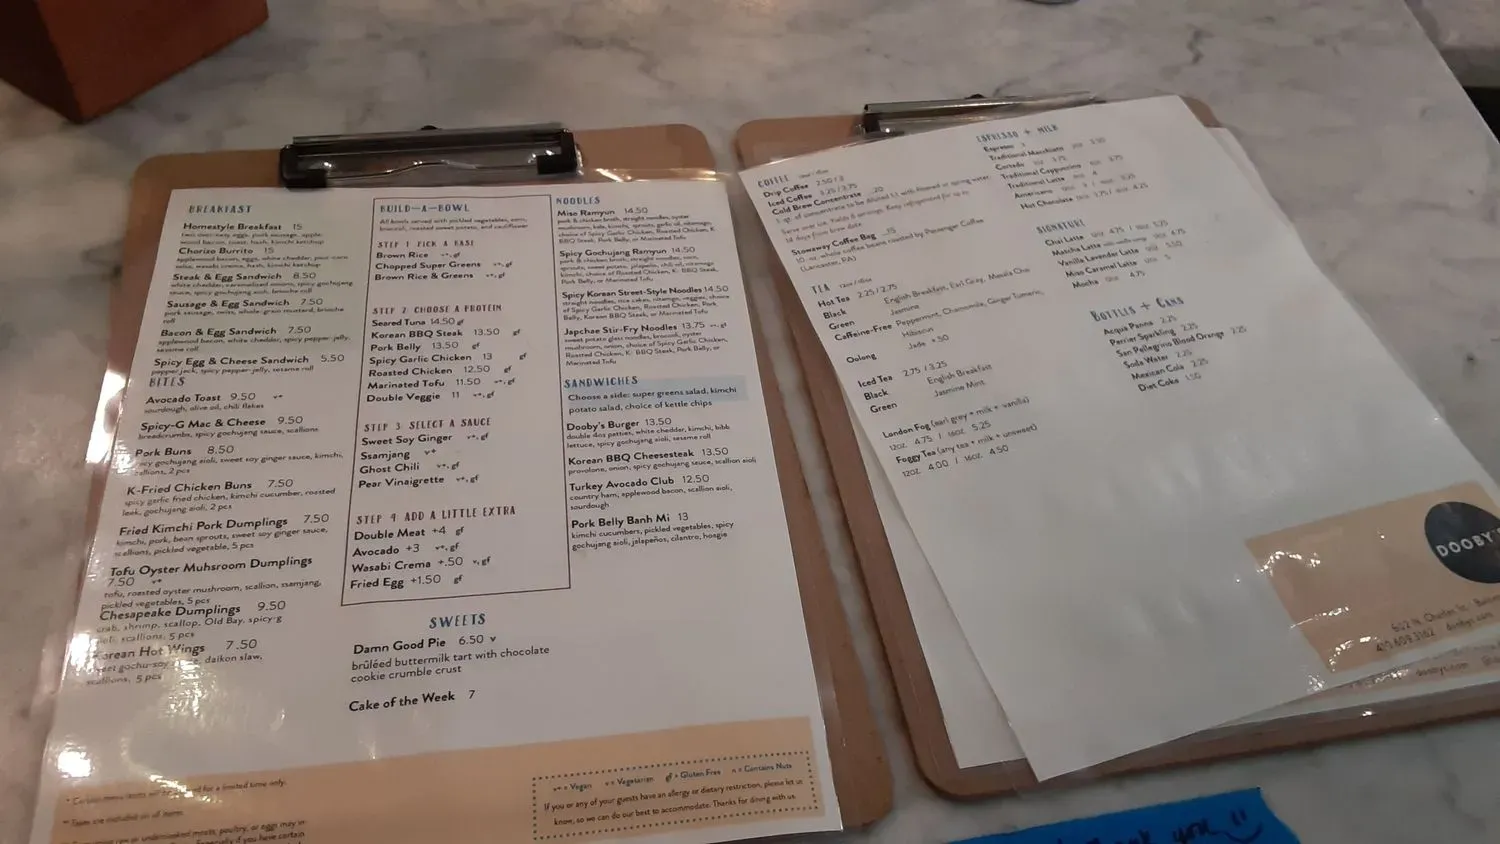 BREAKFAST
Homestyle Breakfast 15
two over-easy eggs, pork sausage, apple-
wood bacon, toast, hash, kimchi ketchup
Chorizo Burrito 15
applewood bacon, eggs, white cheddar, pour-corn
salsa, wasabi crema, hash, kimchi ketchup
Steak & Egg Sandwich 8.50
white cheddar, caramelized onions, spicy gochujang
sauce, spicy gochujang aioli, brioche roll
Sausage & Egg Sandwich 7.50
pork sausage, swiss, whole-grain mustard, brioche
roll
Bacon & Egg Sandwich 7.50
applewood bacon, white cheddar, spicy pepper-jelly,
sesame roll
Spicy Egg & Cheese Sandwich 5.50
pepper jack, spicy pepper-jelly, sesame roll
BITES
Avocado Toast 9.50 v+
sourdough, olive oil, chili flakes
Spicy-G Mac & Cheese 9.50
breadcrumbs, spicy gochujang sauce, scallions
Pork Buns 8.50
spicy gochujang aioli, sweet soy ginger sauce, kimchi,
scallions, 2 pcs
K-Fried Chicken Buns 7.50
spicy garlic fried chicken, kimchi cucumber, roasted
leek, gochujang aioli, 2 pcs
Fried Kimchi Pork Dumplings 7.50
kimchi, pork, bean sprouts, sweet soy ginger sauce,
scallions, pickled vegetable, 5 pcs
Tofu Oyster Muhsroom Dumplings
7.50 v+
tofu, roasted oyster mushroom, scallion, ssamjang,
pickled vegetables, 5 pcs
Chesapeake Dumplings 9.50
crab, shrimp, scallop, Old Bay, spicy-g
aioli, scallions, 5 pcs
Korean Hot Wings 7.50
sweet gochu-soy daikon slaw,
scallions, 5 pcs
BUILD-A-BOWL
All bowls served with pickled vegetables, corn,
broccoli, roasted sweet potato, and cauliflower
STEP 1 PICK A BASE
Brown Rice v+, gf
Chopped Super Greens v+, gf
Brown Rice & Greens v+, gf
STEP 2 CHOOSE A PROTEIN
Seared Tuna 14.50 gf
Korean BBQ Steak 13.50 gf
Pork Belly 13.50 gf
Spicy Garlic Chicken 13 gf
Roasted Chicken 12.50 gf
Marinated Tofu 11.50 v+, gf
Double Veggie 11 v+, gf
STEP 3 SELECT A SAUCE
Sweet Soy Ginger v+, gf
Ssamjang v+
Ghost Chili v+, gf
Pear Vinaigrette v+, gf
STEP 4 ADD A LITTLE EXTRA
Double Meat +4 gf
Avocado +3 v+, gf
Wasabi Crema +.50 v, gf
Fried Egg +1.50 gf
SWEETS
Damn Good Pie 6.50 v
brûléed buttermilk tart with chocolate
cookie crumble crust
Cake of the Week 7
NOODLES
Miso Ramyun 14.50
pork & chicken broth, straight noodles, oyster
mushroom, kale, kimchi, sprouts, garlic oil, nitamago,
choice of Spicy Garlic Chicken, Roasted Chicken, K-
BBQ Steak, Pork Belly, or Marinated Tofu
Spicy Gochujang Ramyun 14.50
pork & chicken broth, straight noodles, corn,
sprouts, sweet potato, jalapeño, chili oil, nitamago
kimchi, choice of Roasted Chicken, K- BBQ Steak,
Pork Belly, or Marinated Tofu
Spicy Korean Street-Style Noodles 14.50
straight noodles, rice cakes, nitamago, veggies, choice
of Spicy Garlic Chicken, Roasted Chicken, Pork
Belly, Korean BBQ Steak, or Marinated Tofu
Japchae Stir-Fry Noodles 13.75 v+, gf
sweet potato glass noodles, broccoli, oyster
mushroom, onion, choice of Spicy Garlic Chicken,
Roasted Chicken, K-BBQ Steak, Pork Belly, or
Marinated Tofu
SANDWICHES
Choose a side: super greens salad, kimchi
potato salad, choice of kettle chips
Dooby's Burger 13.50
double dos patties, white cheddar, kimchi, bibb
lettuce, spicy gochujang aioli, sesame roll
Korean BBQ Cheesesteak 13.50
provolone, onion, spicy gochujang sauce, scallion aioli
Turkey Avocado Club 12.50
country ham, applewood bacon, scallion aioli,
sourdough
Pork Belly Banh Mi 13
kimchi cucumbers, pickled vegetables, spicy
gochujang aioli, jalapeños, cilantro, hoagie
* Certain menu items will be for a limited time only.
** Taxes are included on all items.
raw or undercooked meats, poultry, or eggs may in-
Especially if you have certain
v+ = Vegan v = Vegetarian gf = Gluten Free n = Contains Nuts
If you or any of your guests have an allergy or dietary restriction, please let us
know, so we can do our best to accommodate. Thanks for dining with us.
COFFEE 12oz / 16oz
Drip Coffee 2.50 / 3
Iced Coffee 3.25 / 3.75
Cold Brew Concentrate 20
1 qt. of concentrate to be diluted 1:1 with filtered or spring water.
Serve over ice. Yields 8 servings. Keep refrigerated for up to
14 days from brew date.
Stowaway Coffee Bag 15
10 oz. whole coffee beans roasted by Passenger Coffee
(Lancaster, PA)
TEA 12oz / 16oz
Hot Tea 2.25 / 2.75
Black English Breakfast, Earl Gray, Masala Chai
Green Jasmine
Caffeine-Free Peppermint, Chamomile, Ginger Tumeric,
Hibiscus
Oolong Jade +.50
Iced Tea 2.75 / 3.25
Black English Breakfast
Green Jasmine Mint
London Fog (earl grey + milk + vanilla)
12oz. 4.75 / 16oz. 5.25
Foggy Tea (any tea + milk + unsweet)
12oz. 4.00 / 16oz. 4.50
ESPRESSO + MILK
Espresso 3
Traditional Macchiato 3.50
Cortado 3.75
Traditional Cappuccino 3.75
Traditional Latte 4
Americano 3 / 3.25
Hot Chocolate 3.75 / 16oz. 4.25
SIGNATURE
Chai Latte 12oz. 4.75 / 16oz. 5.75
Matcha Latte 4.75
Vanilla Lavender Latte 5.50
Miso Caramel Latte 5
Mocha 4.75
BOTTLES + CANS
Acqua Panna 2.25
Perrier Sparkling 2.25
San Pellegrino Blood Orange 2.25
Soda Water 2.25
Mexican Cola 2.25
Diet Coke 1.50
DOOBY'S
802 N. Charles St.
410.609.3162 doobys.com
doobys.com
you